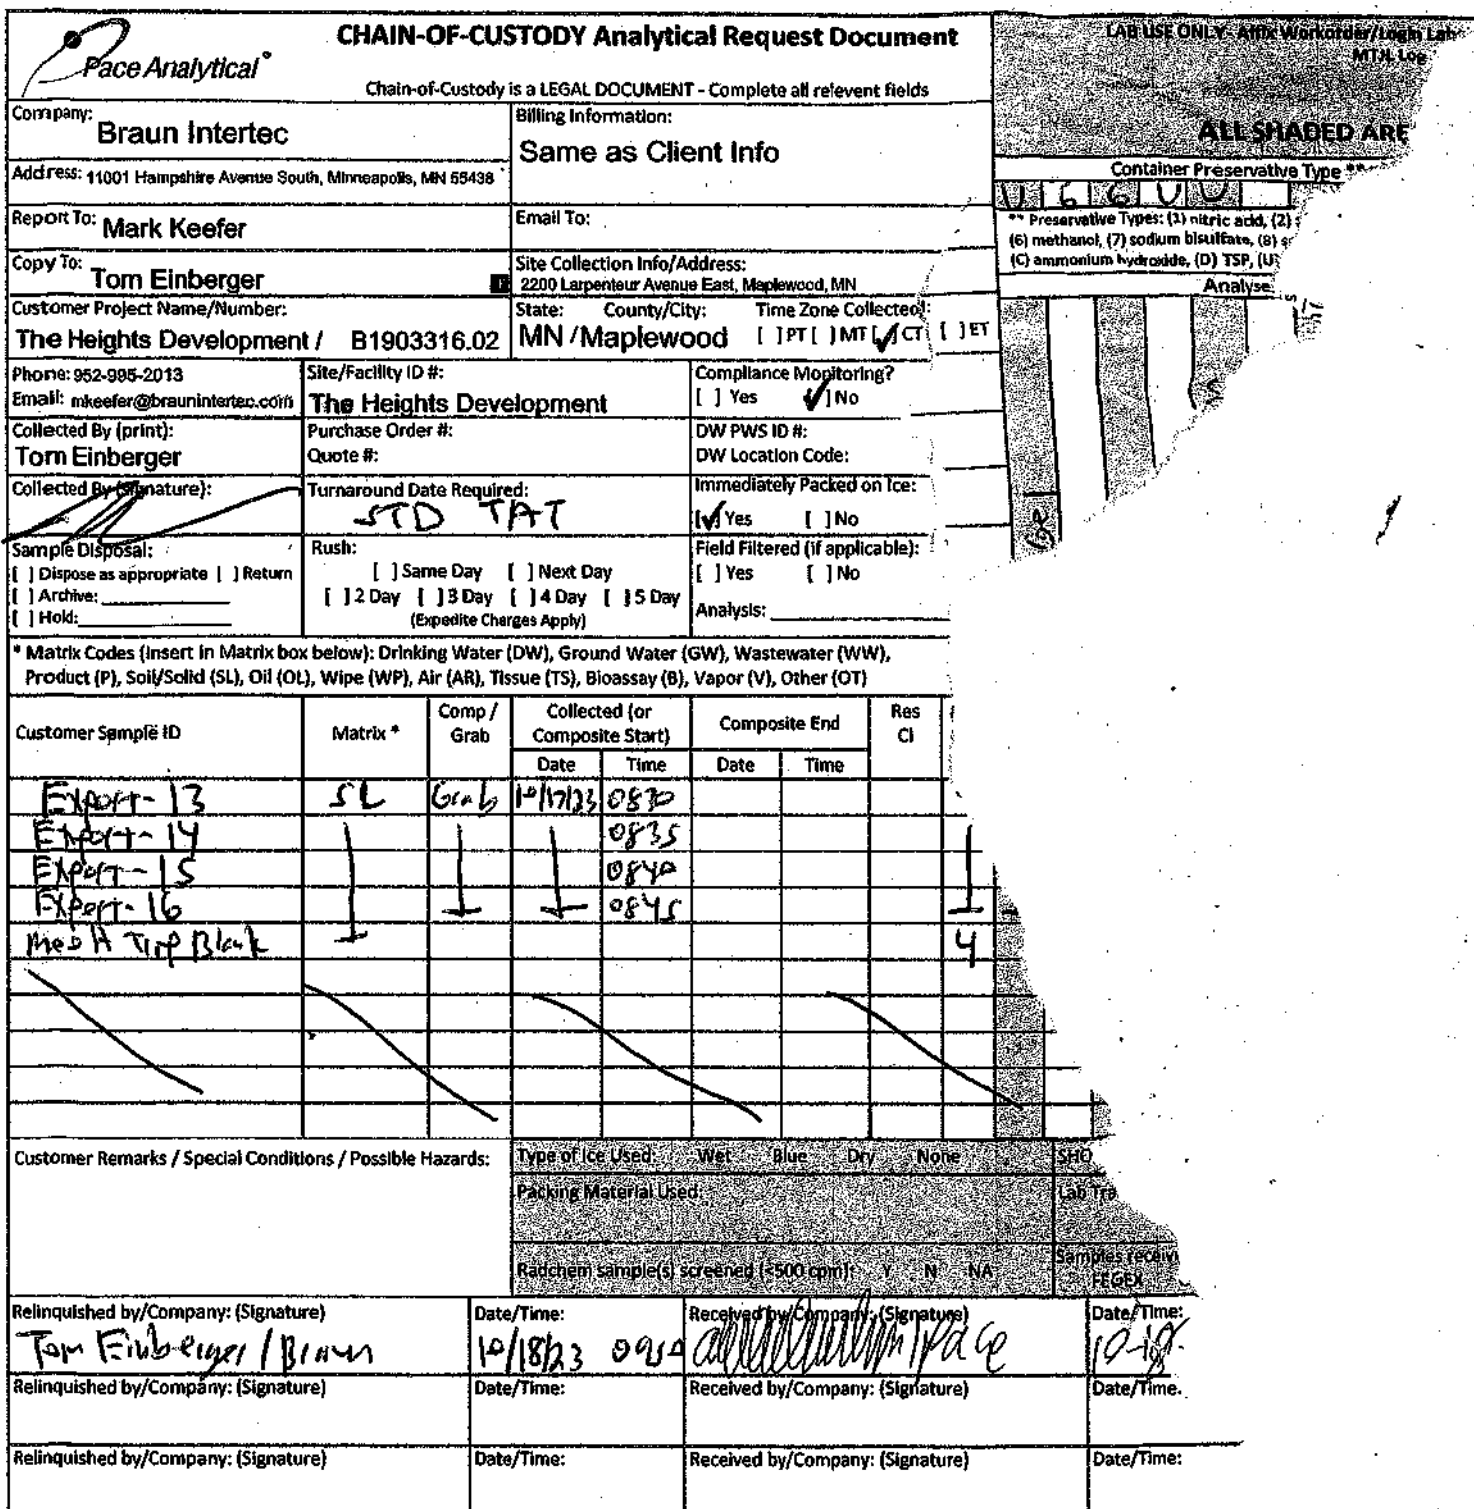 Pace Analytical®
CHAIN-OF-CUSTODY Analytical Request Document
Chain-of-Custody is a LEGAL DOCUMENT - Complete all relevent fields
LAB USE ONLY- Affix Workorder/Login Lab
MTJL Log
ALL SHADED ARE
Company: Braun Intertec
Billing Information:
Same as Client Info
Address: 11001 Hampshire Avenue South, Minneapolis, MN 55438
Container Preservative Type **
U 6 6 U U
Report To: Mark Keefer
Email To:
** Preservative Types: (1) nitric acid, (2)
(6) methanol, (7) sodium bisulfate, (8)
(C) ammonium hydroxide, (D) TSP, (U
Copy To: Tom Einberger
Site Collection Info/Address:
2200 Larpenteur Avenue East, Maplewood, MN
Analyse
Customer Project Name/Number:
The Heights Development / B1903316.02
State: County/City: Time Zone Collected:
MN / Maplewood [ ] PT [ ] MT [✓] CT [ ] ET
Phone: 952-995-2013
Email: mkeefer@braunintertec.com
Site/Facility ID #:
The Heights Development
Compliance Monitoring?
[ ] Yes [✓] No
Collected By (print):
Tom Einberger
Purchase Order #:
Quote #:
DW PWS ID #:
DW Location Code:
Collected By (signature):
Turnaround Date Required:
STD TAT
Immediately Packed on Ice:
[✓] Yes [ ] No
Sample Disposal:
[ ] Dispose as appropriate [ ] Return
[ ] Archive:
[ ] Hold:
Rush:
[ ] Same Day [ ] Next Day
[ ] 2 Day [ ] 3 Day [ ] 4 Day [ ] 5 Day
(Expedite Charges Apply)
Field Filtered (if applicable):
[ ] Yes [ ] No
Analysis:
* Matrix Codes (Insert in Matrix box below): Drinking Water (DW), Ground Water (GW), Wastewater (WW),
Product (P), Soil/Solid (SL), Oil (OL), Wipe (WP), Air (AR), Tissue (TS), Bioassay (B), Vapor (V), Other (OT)
Customer Sample ID Matrix * Comp / Grab Collected (or Composite Start) Composite End Res Cl
Date Time Date Time
Export-13 SL Grab 10/17/23 0830
Export-14 0835
Export-15 0840
Export-16 0845
MeOH Trip Blank 4
Customer Remarks / Special Conditions / Possible Hazards:
Type of Ice Used: Wet Blue Dry None
SHO
Packing Material Used:
Lab Tra
Radchem sample(s) screened (<500 cpm): Y N NA
Samples receiv
FEGEX
Relinquished by/Company: (Signature) Date/Time: Received by/Company: (Signature) Date/Time:
Tom Einberger / Braun 10/18/23 / Pace 10-18-
Relinquished by/Company: (Signature) Date/Time: Received by/Company: (Signature) Date/Time.
Relinquished by/Company: (Signature) Date/Time: Received by/Company: (Signature) Date/Time: